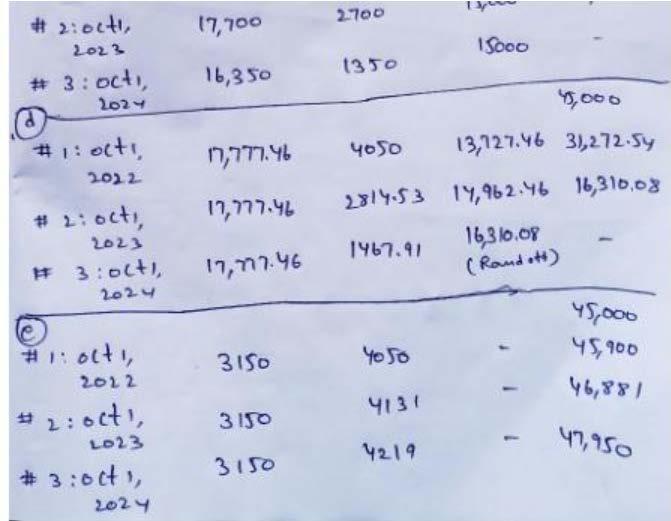 # 2: oct1, 17,700 2700
2023
# 3: oct1, 16,350 1350 15000 -
2024
(d) 45,000
# 1: oct1, 17,777.46 4050 13,727.46 31,272.54
2022
# 2: oct1, 17,777.46 2814.53 14,962.46 16,310.08
2023
# 3: oct1, 17,777.46 1467.91 16,310.08 -
2024 (Round off)
(e) 45,000
# 1: oct1, 3150 4050 - 45,900
2022
# 2: oct1, 3150 4131 - 46,881
2023
# 3: oct1, 3150 4219 - 47,950
2024